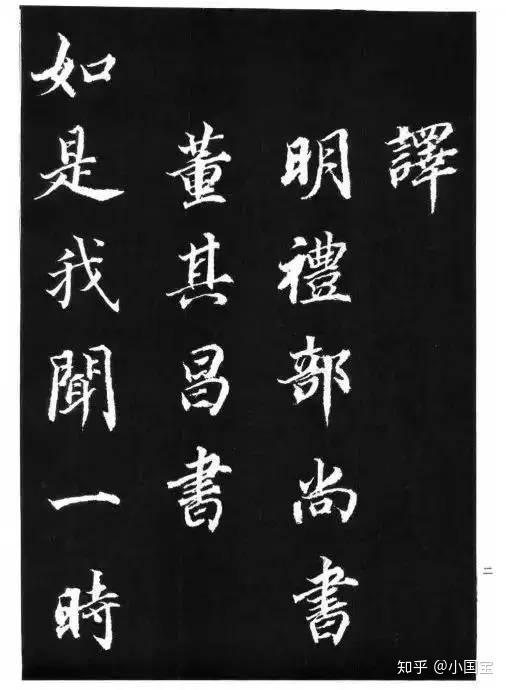 譯
明禮部尚書
董其昌書
如是我聞一時
二
知乎 @小国宝